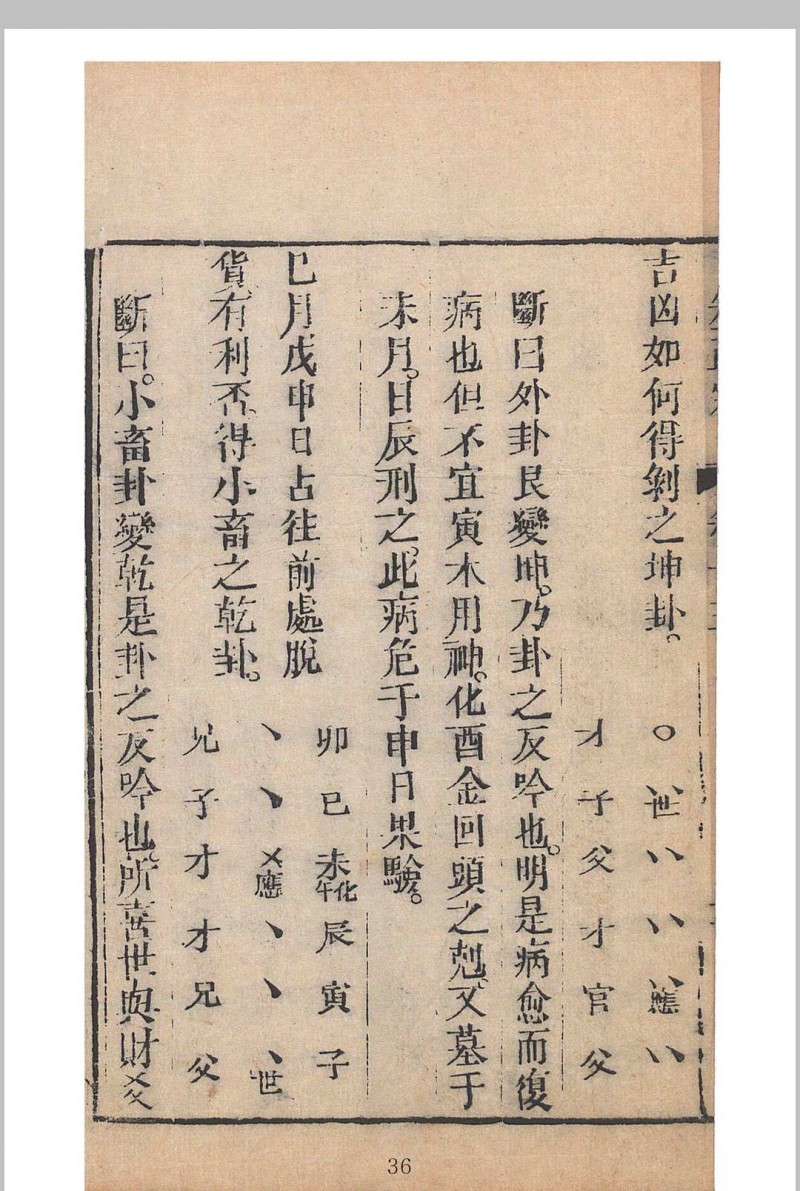 吉凶如何得剝之坤卦。
〇 〵〵世 〵〵 〵〵 〵〵應 〵〵
才 子 父 才 官 父
斷曰外卦艮變坤。乃卦之反吟也。明是病愈而復
病也但不宜寅木用神。化酉金回頭之剋。又墓于
未月。日辰刑之。此病危于申日果驗。
巳月戊申日占往前處脫
卯 巳 未化午 辰 寅 子
貨有利否、得小畜之乾卦。
〵 〵 乂應 〵 〵 〵世
兄 子 才 才 兄 父
斷曰。小畜卦變乾是卦之反吟也。所喜世與財爻
36